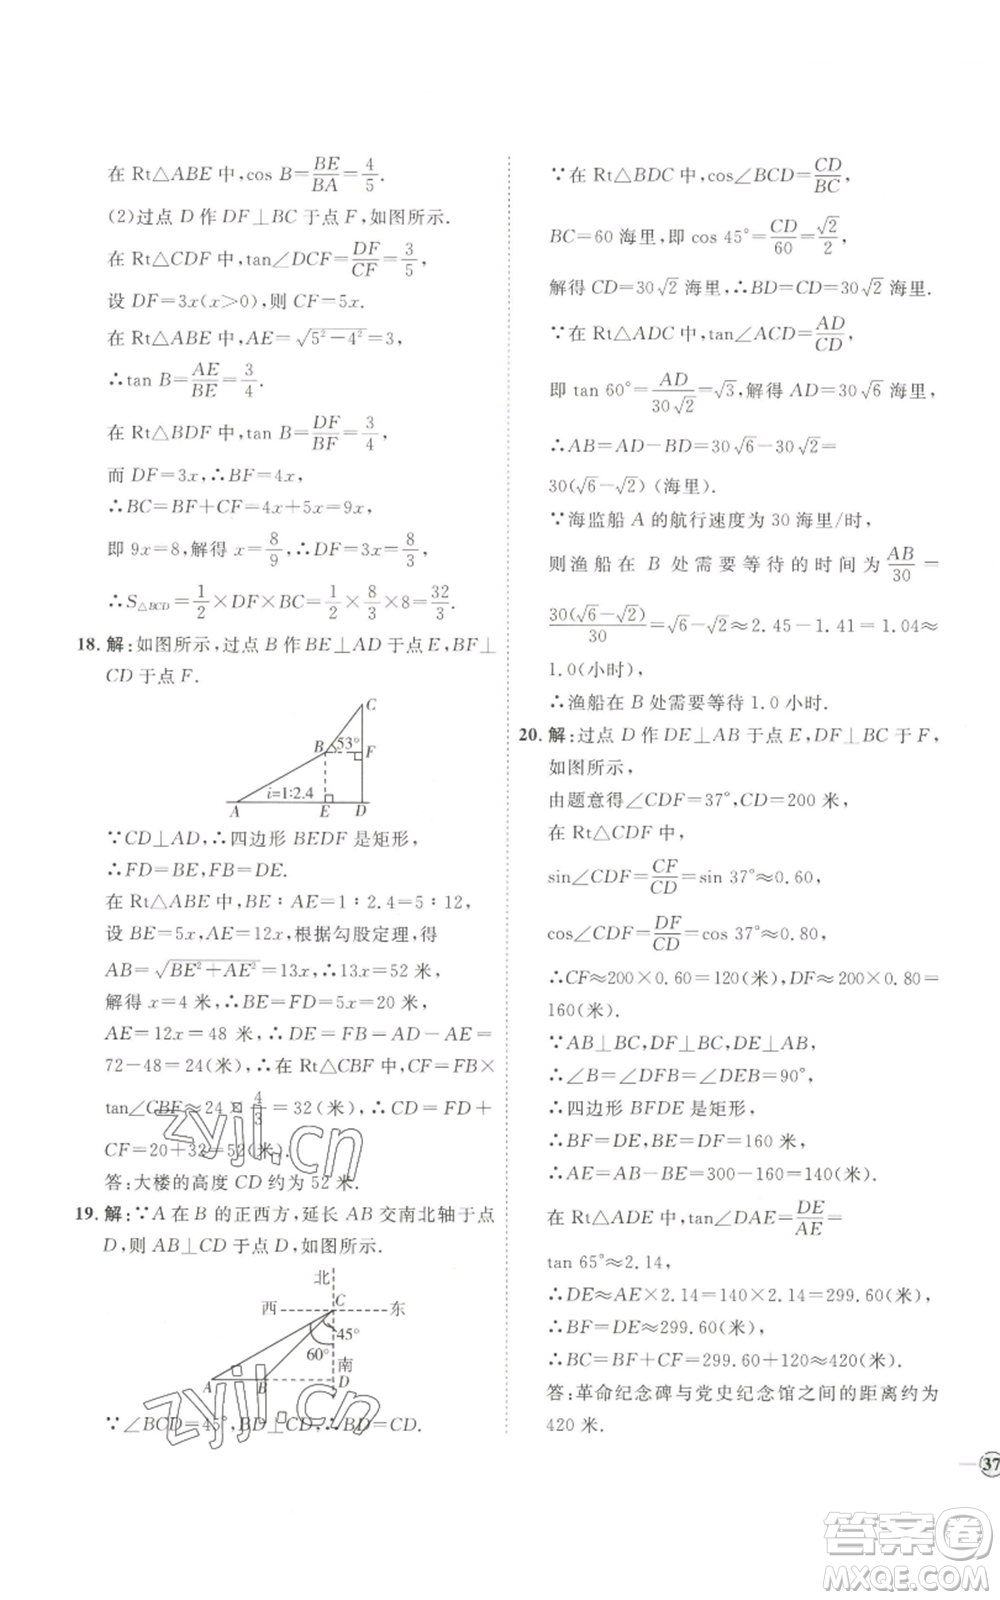 在 Rt△ABE 中,cos B=BE/BA=4/5.
(2)过点 D 作 DF⊥BC 于点 F,如图所示.
在 Rt△CDF 中,tan∠DCF=DF/CF=3/5,
设 DF=3x(x>0),则 CF=5x.
在 Rt△ABE 中,AE=√(5²-4²)=3,
∴tan B=AE/BE=3/4.
在 Rt△BDF 中,tan B=DF/BF=3/4,
而 DF=3x,∴BF=4x,
∴BC=BF+CF=4x+5x=9x,
即 9x=8,解得 x=8/9,∴DF=3x=8/3,
∴S△BCD=1/2×DF×BC=1/2×8/3×8=32/3.
18.解:如图所示,过点 B 作 BE⊥AD 于点 E,BF⊥
CD 于点 F.
C
B 53° F
i=1:2.4
A E D
∵CD⊥AD,∴四边形 BEDF 是矩形,
∴FD=BE,FB=DE.
在 Rt△ABE 中,BE∶AE=1∶2.4=5∶12,
设 BE=5x,AE=12x,根据勾股定理,得
AB=√(BE²+AE²)=13x,∴13x=52 米,
解得 x=4 米,∴BE=FD=5x=20 米,
AE=12x=48 米,∴DE=FB=AD-AE=
72-48=24(米),∴在 Rt△CBF 中,CF=FB×
tan∠CBF≈24×4/3=32(米),∴CD=FD+
CF=20+32=52(米).
答:大楼的高度 CD 约为 52 米.
19.解:∵A 在 B 的正西方,延长 AB 交南北轴于点
D,则 AB⊥CD 于点 D,如图所示.
北
西 C 东
45°
60°
南
A B D
∵∠BCD=45°,BD⊥CD,∴BD=CD.
∵在 Rt△BDC 中,cos∠BCD=CD/BC,
BC=60 海里,即 cos 45°=CD/60=√2/2,
解得 CD=30√2 海里,∴BD=CD=30√2 海里.
∵在 Rt△ADC 中,tan∠ACD=AD/CD,
即 tan 60°=AD/30√2=√3,解得 AD=30√6 海里,
∴AB=AD-BD=30√6-30√2=
30(√6-√2)(海里).
∵海监船 A 的航行速度为 30 海里/时,
则渔船在 B 处需要等待的时间为 AB/30=
30(√6-√2)/30=√6-√2≈2.45-1.41=1.04≈
1.0(小时),
∴渔船在 B 处需要等待 1.0 小时.
20.解:过点 D 作 DE⊥AB 于点 E,DF⊥BC 于 F,
如图所示,
由题意得∠CDF=37°,CD=200 米,
在 Rt△CDF 中,
sin∠CDF=CF/CD=sin 37°≈0.60,
cos∠CDF=DF/CD=cos 37°≈0.80,
∴CF≈200×0.60=120(米),DF≈200×0.80=
160(米).
∵AB⊥BC,DF⊥BC,DE⊥AB,
∴∠B=∠DFB=∠DEB=90°,
∴四边形 BFDE 是矩形,
∴BF=DE,BE=DF=160 米,
∴AE=AB-BE=300-160=140(米),
在 Rt△ADE 中,tan∠DAE=DE/AE=
tan 65°≈2.14,
∴DE≈AE×2.14=140×2.14=299.60(米),
∴BF=DE≈299.60(米),
∴BC=BF+CF=299.60+120≈420(米).
答:革命纪念碑与党史纪念馆之间的距离约为
420 米.
37
zyjl.cn
zyjl.cn
答案卷
MXQE.COM